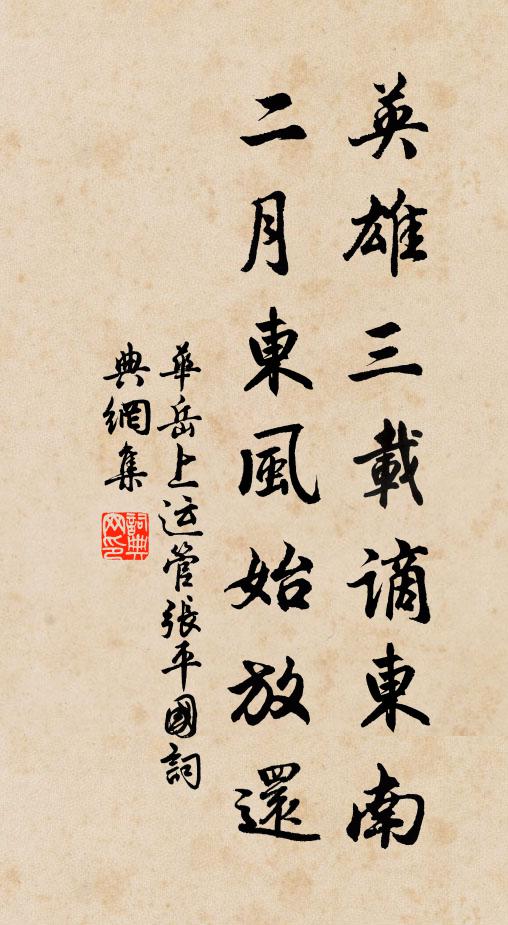 英雄三載謫東南
二月東風始放還
華岳上运管張平國詞
典網集
詞典
网印